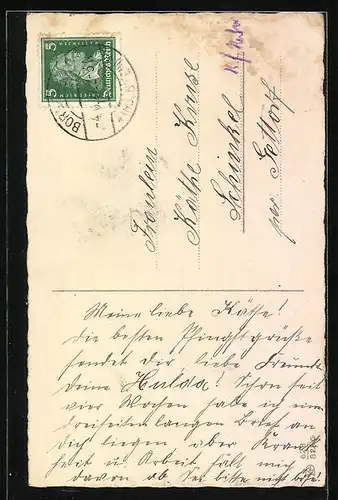 5 Deutsches Reich 5
Fräulein
Käthe Kruse
Schinkel
per Gettorf
Meine liebe Käthe!
Die besten Pfingstgrüße
sendet dir liebe Freundin
deine Hulda! Schon seit
vier Wochen habe ich einen
dreiseiten langen Brief an
dich liegen aber Krank-
heit u. Arbeit hält mich
davon ab. Sei bitte nicht böse.